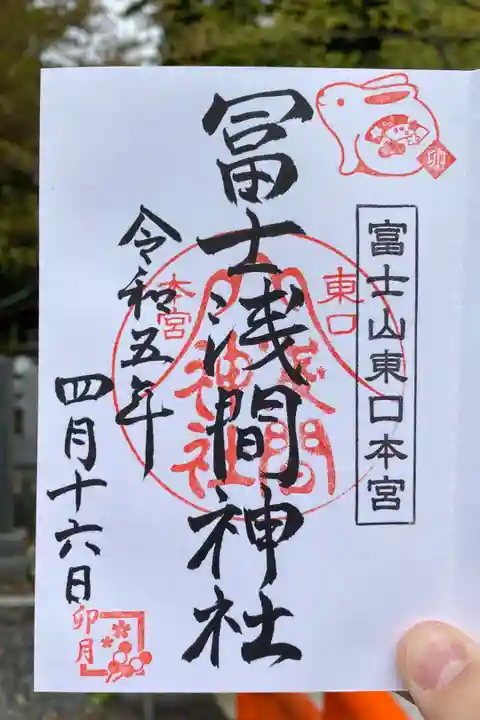 卯
富士山東口本宮
東口
本宮
浅間
神社
冨士浅間神社
令和五年
四月十六日
卯月